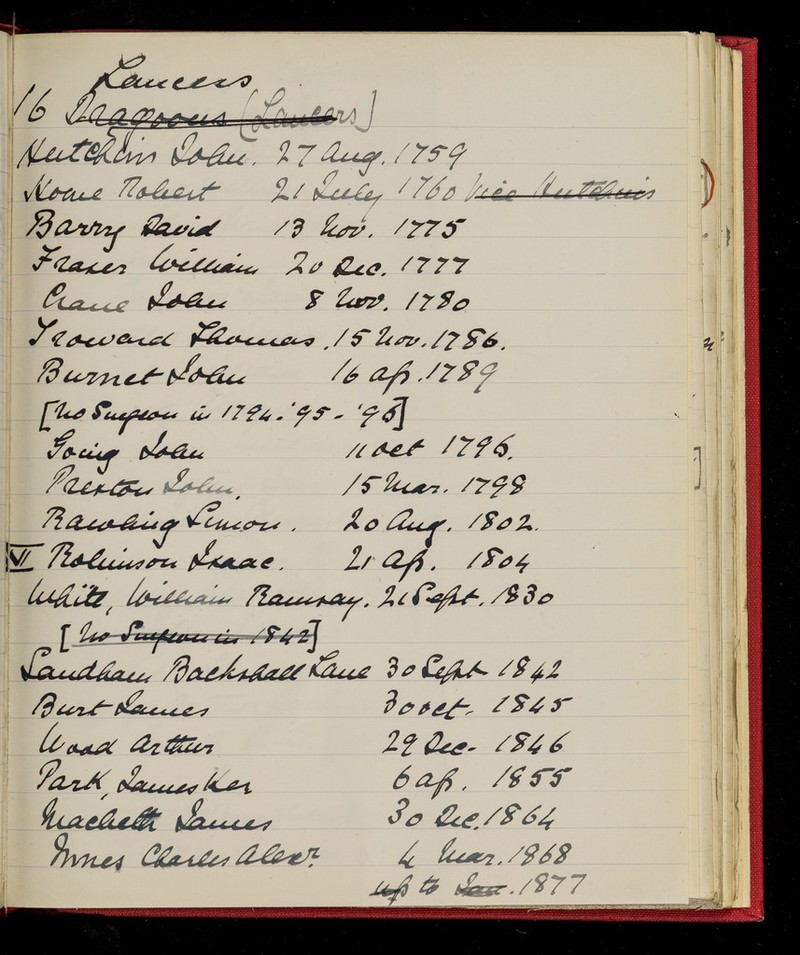 Lancers
16 Dragoons (Lancers)
Hutchins John. 27 Aug. 1759
Home Robert 21 July 1760 vice Hutchins
Barry David 13 Nov. 1775
Fraser William 20 Dec. 1777
Crane John 8 Nov. 1780
Troward Thomas. 15 Nov. 1786.
Burnet John 16 Ap. 1789
[No Surgeon in 1794. '95 - '96]
Going John 11 Oct 1796.
Preston John. 15 Mar. 1798
Rawling Simon. 20 Aug. 1802.
VI Robinson Isaac. 21 Ap. 1804
White, William Ramsay. 21 Sept. 1830
[No Surgeon in 1842]
Sandham Backshall Lane 30 Sept 1842
Burt James 30 Oct. 1845
Wood Arthur 29 Dec. 1846
Park, James Ker 6 Ap. 1855
Macbeth James 30 Dec. 1864
Innes Charles Alexr. 4 Mar. 1868
up to Jan. 1877